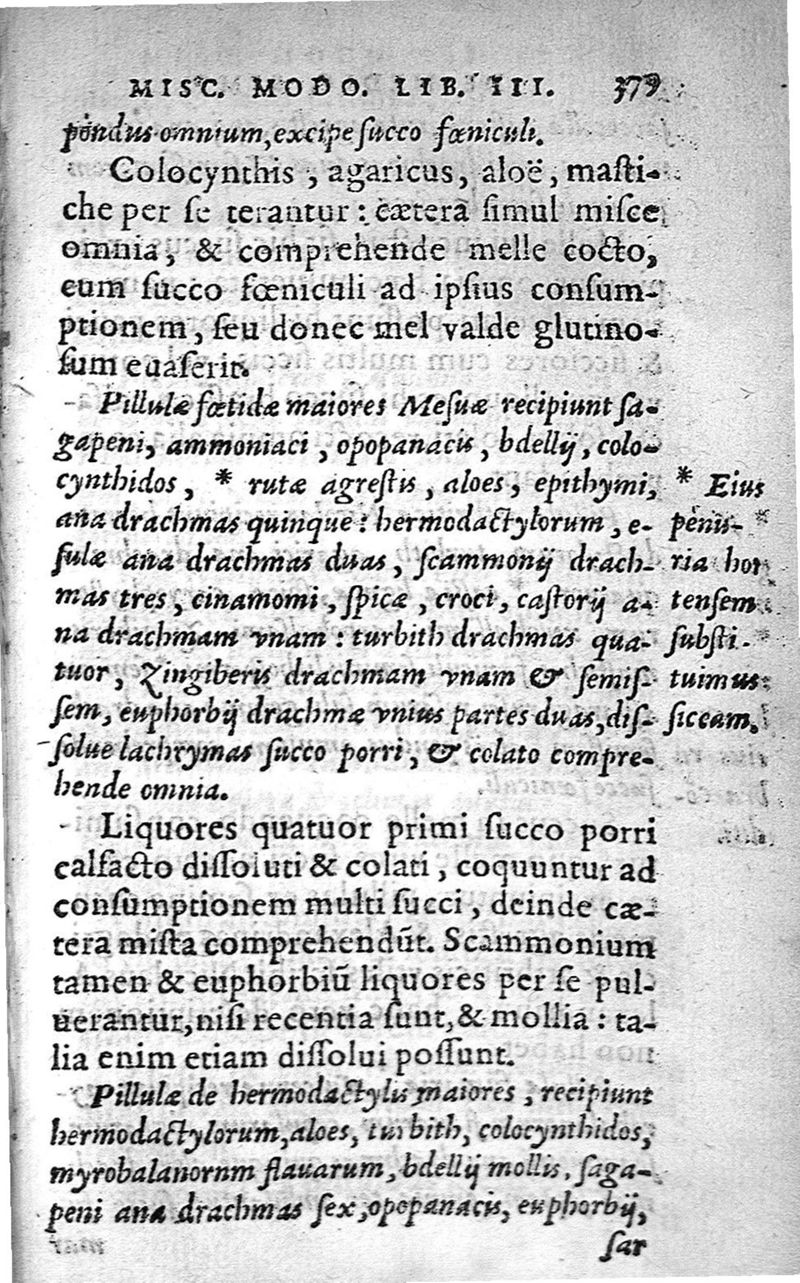 MISC. MODO. LIB. III. 379
pondus omnium, excipe succo fœniculi.
Colocynthis, agaricus, aloë, masti-
che per se terantur: cætera simul misce
omnia, & comprehende melle cocto,
cum succo fœniculi ad ipsius consum-
ptionem, seu donec mel valde glutino-
sum euaserit.
Pillulæ fœtidæ maiores Mesuæ recipiunt sa-
gapeni, ammoniaci, opopanacis, bdellij, colo-
cynthidos, * rutæ agrestis, aloes, epithymi,
ana drachmas quinque: hermodactylorum, e-
sulæ ana drachmas duas, scammonij drach-
mas tres, cinamomi, spicæ, croci, castorij a-
na drachmam vnam: turbith drachmas qua-
tuor, Zingiberis drachmam vnam & semis-
sem, euphorbij drachmæ vnius partes duas, dis-
solue lachrymas succo porri, & colato compre-
hende omnia.
* Eius
penu-
ria hor
tensem
substi-
tuimus
siccam.
Liquores quatuor primi succo porri
calfacto dissoluti & colati, coquuntur ad
consumptionem multi succi, deinde cæ-
tera mista comprehendũt. Scammonium
tamen & euphorbiũ liquores per se pul-
uerantur, nisi recentia sunt, & mollia: ta-
lia enim etiam dissolui possunt.
Pillulæ de hermodactylis maiores, recipiunt
hermodactylorum, aloes, turbith, colocynthidos,
myrobalanornm flauarum, bdellij mollis, saga-
peni ana drachmas sex, opopanacis, euphorbij,
sar